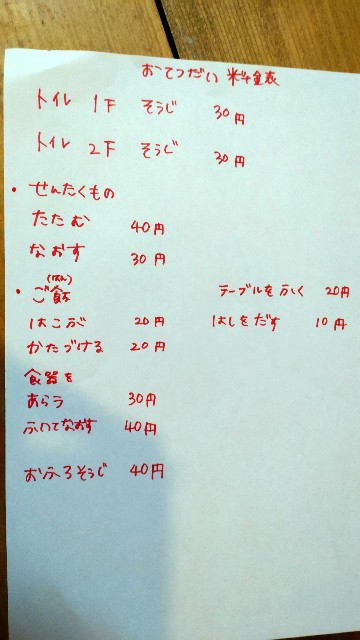 おてつだい 料金表
トイレ 1F そうじ 30円
トイレ 2F そうじ 30円
・せんたくもの
たたむ 40円
なおす 30円
・ご飯(はん)
テーブルをふく 20円
はこぶ 20円
はしをだす 10円
かたづける 20円
食器を
あらう 30円
ふいてなおす 40円
おふろそうじ 40円